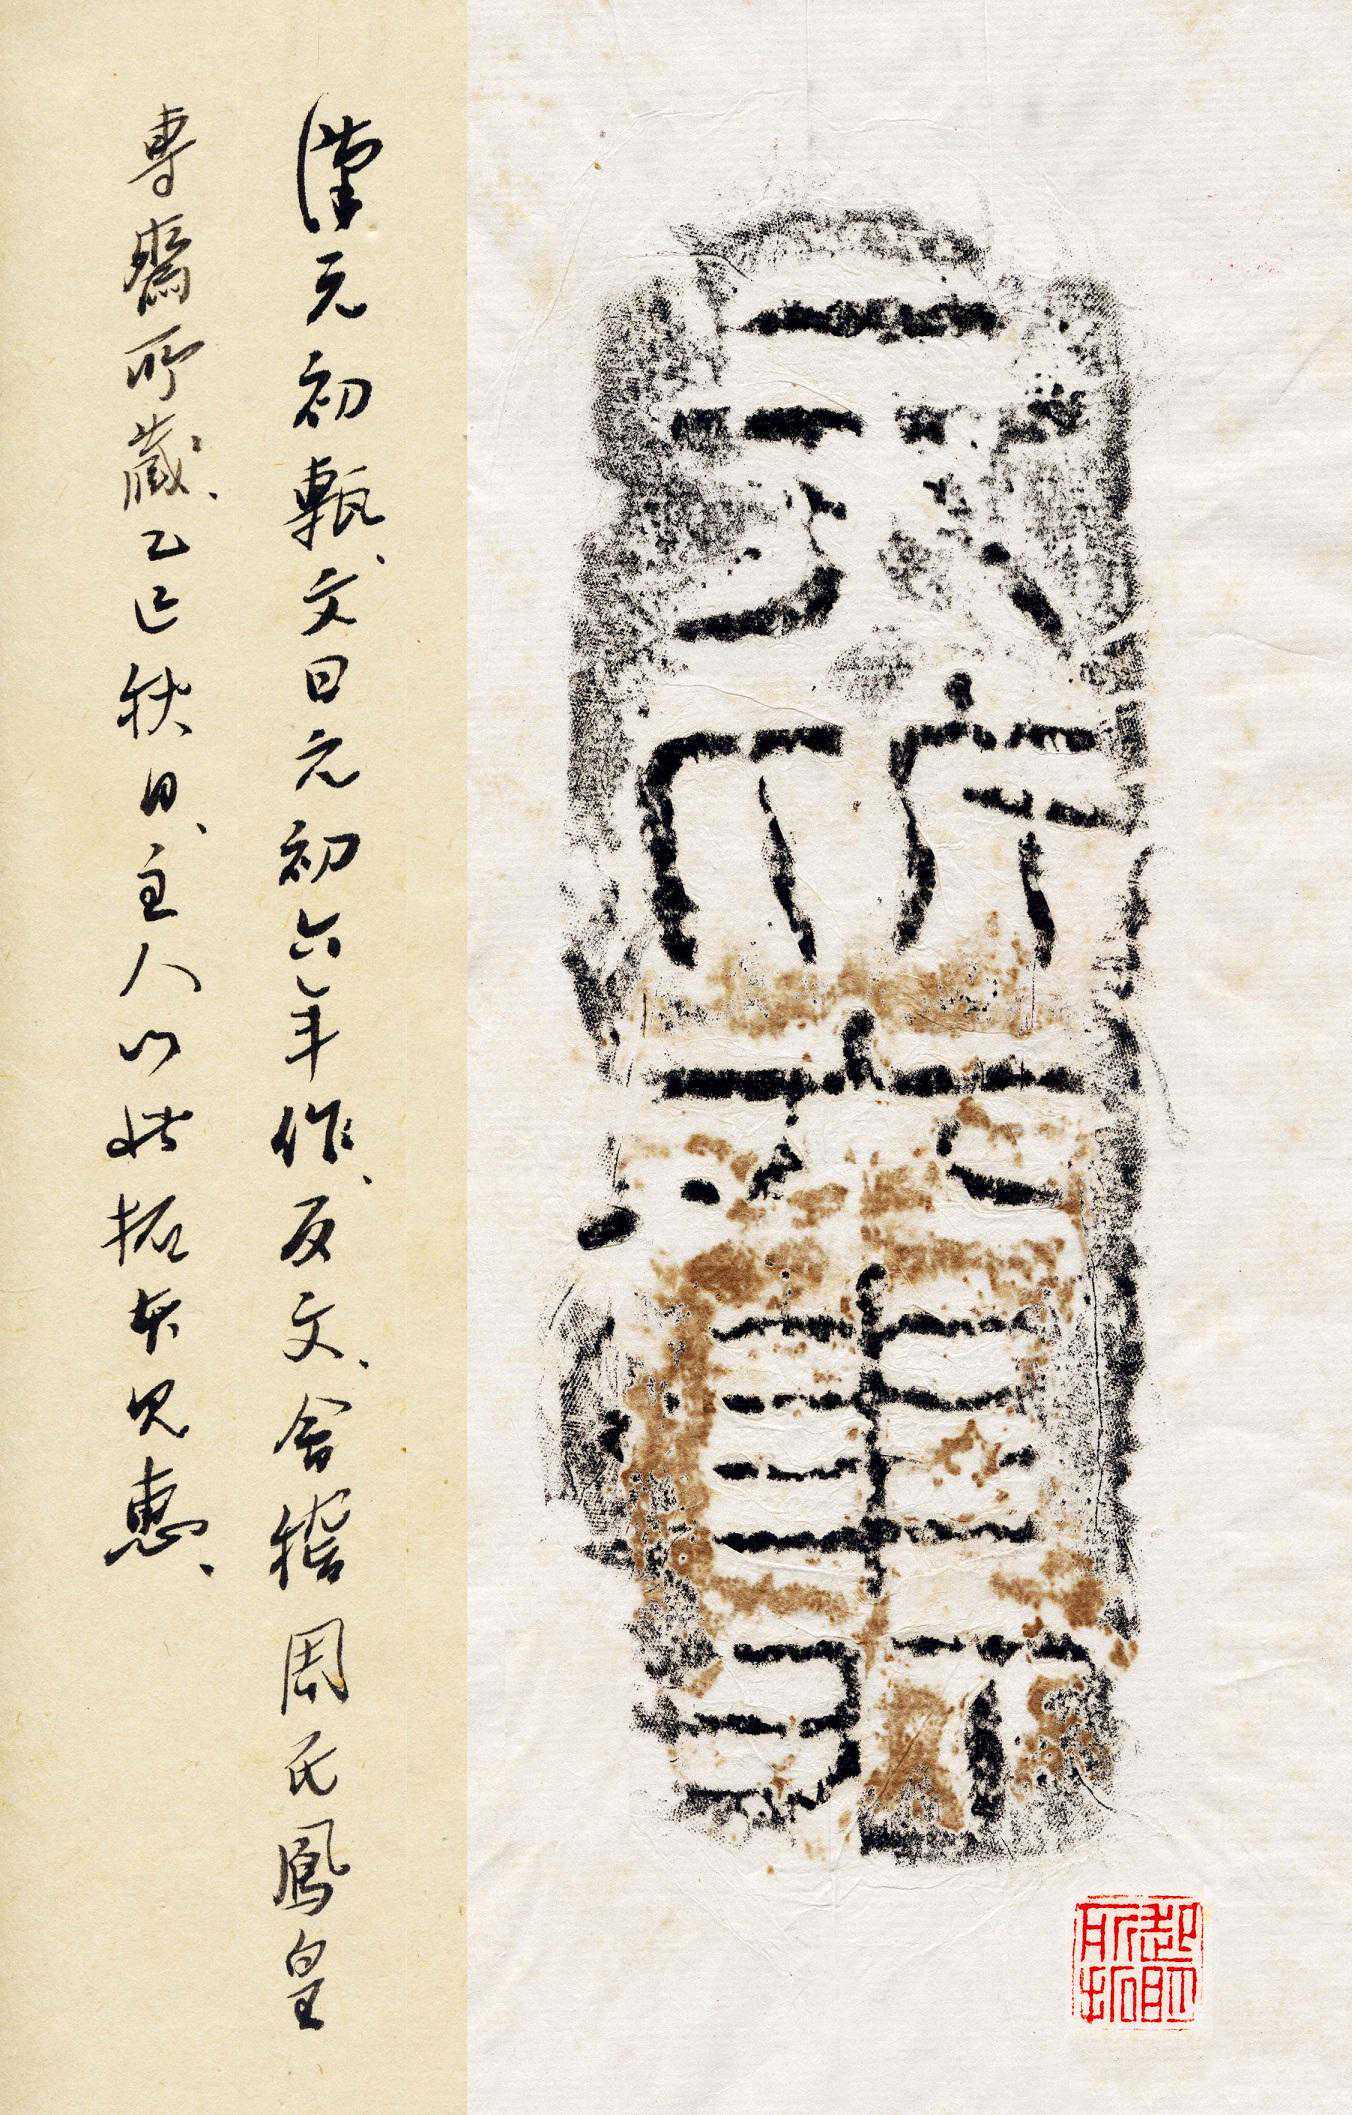 元初六年作
起明所拓
漢元初甎、文曰元初六年作、反文、會稽周氏鳳皇
專齋所藏、乙巳秋日、主人以此拓本見惠、